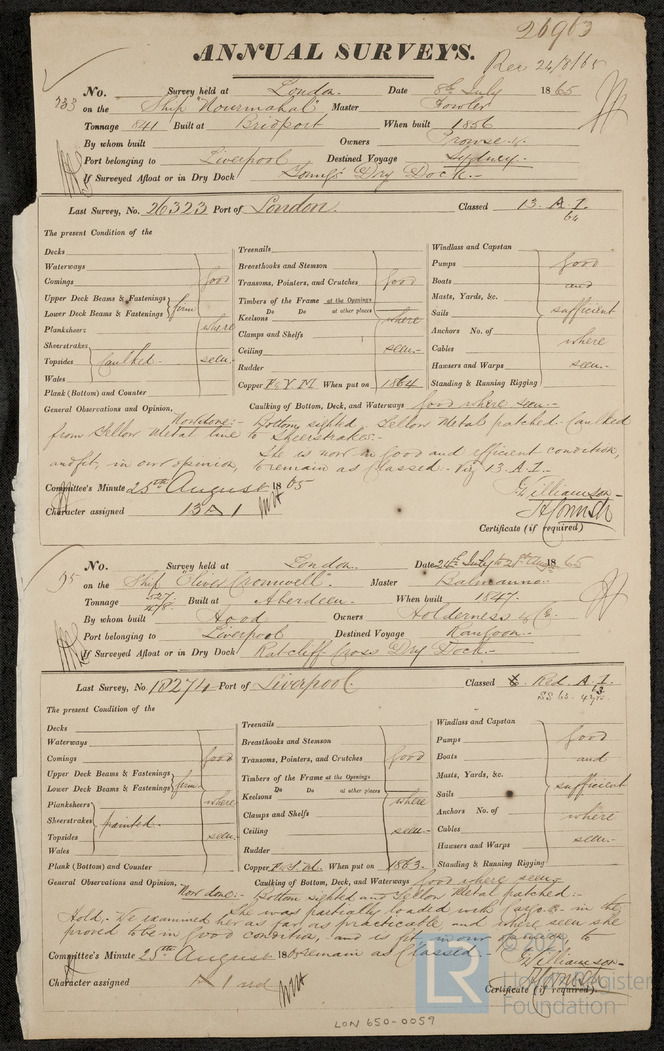 26963
ANNUAL SURVEYS.
Rec 24/8/65
No. Survey held at London. Date 8th July 1865
733 on the Ship "Nourmahal" Master Fowler
Tonnage 841 Built at Bridport When built 1856
By whom built Owners Prowse &
Port belonging to Liverpool Destined Voyage Sydney.-
If Surveyed Afloat or in Dry Dock Dry Dock.-
Last Survey, No. 26323 Port of London. Classed 13. A. I.
64
The present Condition of the
Decks
Waterways
Comings good
Upper Deck Beams & Fastenings
Lower Deck Beams & Fastenings firm
Planksheers where
Sheerstrakes
Topsides Caulked.- seen.-
Wales
Plank (Bottom) and Counter
Treenails
Breasthooks and Stemson
Transoms, Pointers, and Crutches good
Timbers of the Frame at the Openings
Do Do at other places
Keelsons where
Clamps and Shelfs
Ceiling seen.-
Rudder
Copper F. & Y. M. When put on 1864
Windlass and Capstan
Pumps good
Boats and
Masts, Yards, &c.
Sails sufficient
Anchors No. of
Cables where
Hawsers and Warps seen.-
Standing & Running Rigging
General Observations and Opinion, Caulking of Bottom, Deck, and Waterways good where seen.-
Now done:- Bottom sighted, Yellow Metal patched. Caulked
from Yellow Metal line to Sheerstrakes.-
She is now in good and efficient condition,
and fit, in our opinion, to remain as Classed.- Viz 13. A. I.-
Committee's Minute 25th August 1865
Character assigned 13 A 1
G Williamson-
H Cornish
Certificate (if required)
No. Survey held at London. Date 24th July to 21st Aug 1865
75 on the Ship "Oliver Cromwell". Master Balmanno.
Tonnage 527 Built at Aberdeen. When built 1847.
By whom built Hood Owners Holderness & Co.
Port belonging to Liverpool Destined Voyage Rangoon.
If Surveyed Afloat or in Dry Dock Ratcliff Cross Dry Dock.-
Last Survey, No 13274 Port of Liverpool. Classed Red. A. I.
The present Condition of the
Decks
Waterways
Comings good
Upper Deck Beams & Fastenings
Lower Deck Beams & Fastenings firm
Planksheers where
Sheerstrakes painted.
Topsides seen.-
Wales
Plank (Bottom) and Counter
Treenails
Breasthooks and Stemson
Transoms, Pointers, and Crutches good
Timbers of the Frame at the Openings
Do Do at other places
Keelsons where
Clamps and Shelfs
Ceiling seen.-
Rudder
Copper When put on 1863.
Windlass and Capstan
Pumps good
Boats and
Masts, Yards, &c.
Sails sufficient
Anchors No. of
Cables where
Hawsers and Warps seen.-
Standing & Running Rigging
General Observations and Opinion, Caulking of Bottom, Deck, and Waterways good where seen
Now done:- Bottom sighted and Yellow Metal patched:-
She was partially loaded with Cargo in the
Hold. We examined her as far as practicable, and where seen she
proved to be in good condition, and is fit, in our opinion, to
Committee's Minute 25th August 1865 remain as Classed.-
Character assigned A 1 red
G Williamson-
H Cornish
Certificate (if required).
LR
© 2021
Lloyd's Register
Foundation
LON 650-0059